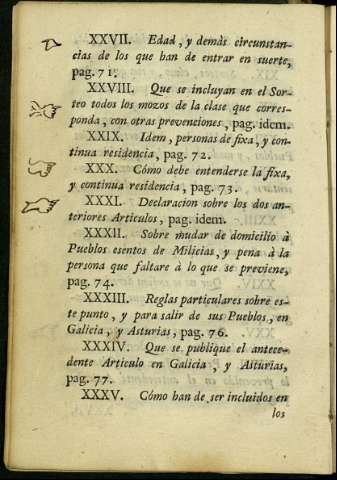 XXVII. Edad, y demàs circunstan-
cias de los que han de entrar en suerte,
pag. 71.
XXVIII. Que se incluyan en el Sor-
teo todos los mozos de la clase que corres-
ponda, con otras prevenciones, pag. idem.
XXIX. Idem, personas de fixa, y con-
tinua residencia, pag. 72.
XXX. Cómo debe entenderse la fixa,
y continua residencia, pag. 73.
XXXI. Declaracion sobre los dos an-
teriores Articulos, pag. idem.
XXXII. Sobre mudar de domicilio à
Pueblos esentos de Milicias, y pena à la
persona que faltare à lo que se previene,
pag. 74.
XXXIII. Reglas particulares sobre es-
te punto, y para salir de sus Pueblos, en
Galicia, y Asturias, pag. 76.
XXXIV. Que se publique el antece-
dente Articulo en Galicia, y Asturias,
pag. 77.
XXXV. Cómo han de ser incluidos en
los